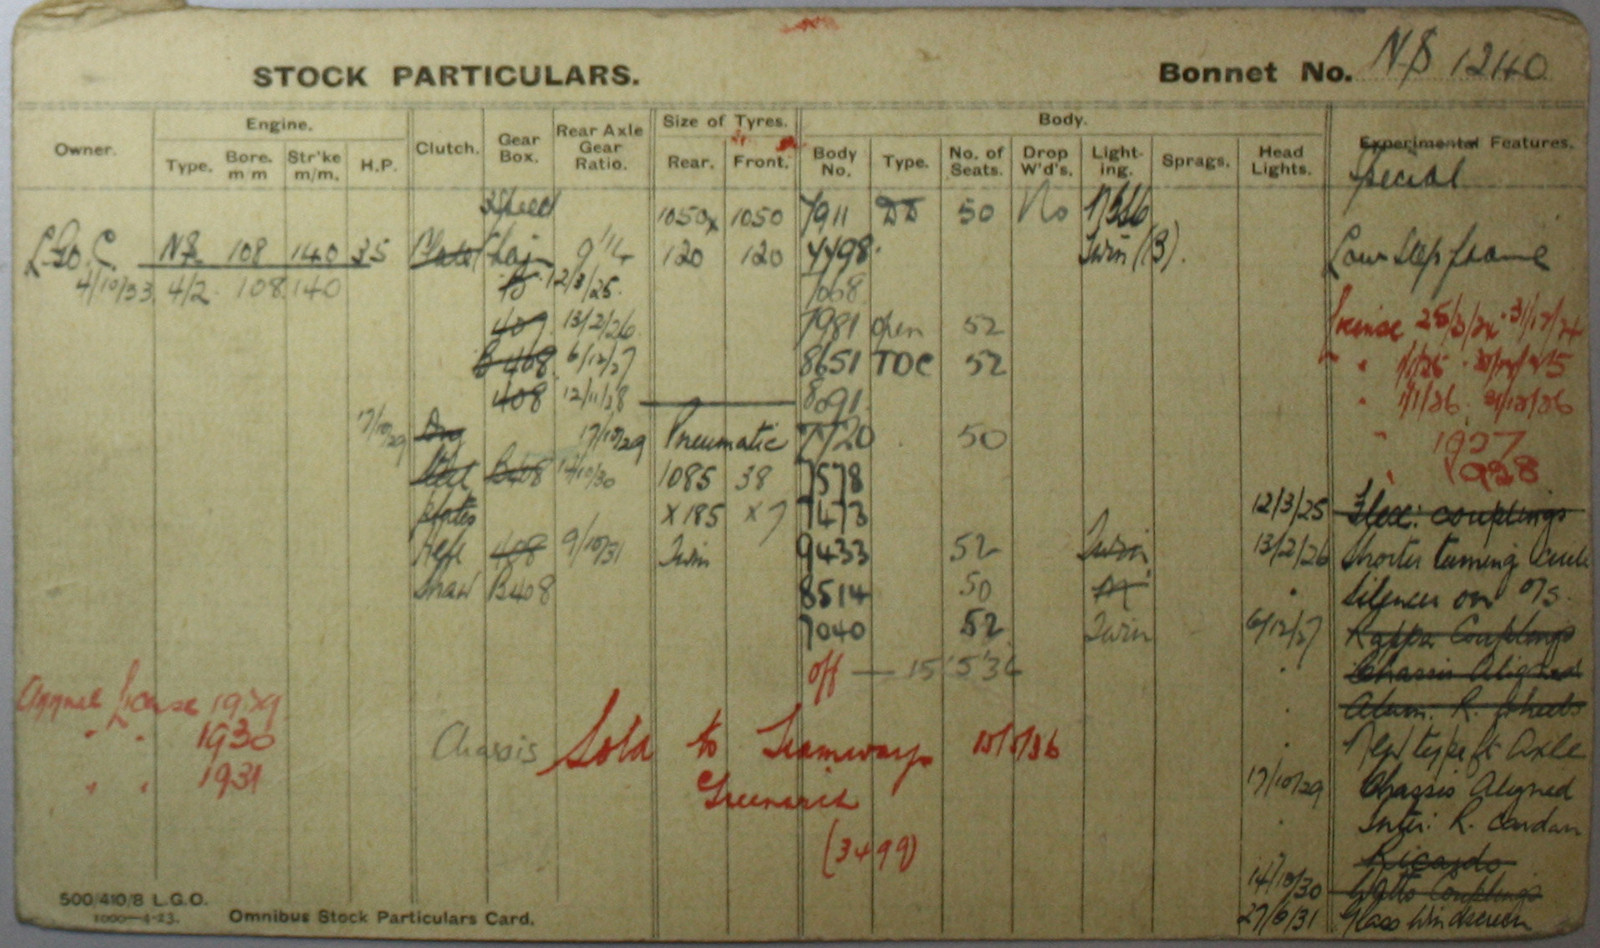 STOCK PARTICULARS. Bonnet No. NS 1240
Owner. Engine. Clutch. Gear Box. Rear Axle Gear Ratio. Size of Tyres. Body. Experimental Features.
Type. Bore. m m Str'ke m/m. H.P. Rear. Front. Body No. Type. No. of Seats. Drop W'd's. Light- ing. Sprags. Head Lights.
Special
3 Speed 1050x 1050 7911 DD 50 No
L.G.O.C. NS 108 140 35 Chain 120 120 4498 Twin (B). Low Step frame
4/10/33 4/2 108 140 12/3/25 7068
409 13/2/26 7981 open 52 License 25/3/24 - 31/12/24
B 408 6/12/27 8651 TDC 52 " "
408 12/11/28 8091 " 1/1/26 31/12/26
17/10/29 Dry 17/10/29 Pneumatic 7720 50 " 1927
B408 14/10/30 1085 38 7578 " 1928
Plates x 185 x 7 7473 12/3/25 Flex: couplings
408 9/10/31 Twin 9433 52 Twin 13/2/26 Shorter turning Circle
B408 8514 50 " Silencer on O/S.
7040 52 Twin 6/12/27 Kappa Couplings
off — 15 5 36 " Chassis Aligned
Annual License 1929 " Alum. R. Wheels
" " 1930 Chassis Sold to Tramways 15/5/36 " New type ft Axle
" " 1931 Greenwich 17/10/29 Chassis Aligned
" Inter: R. Cardan
(3499) Ricardo
14/10/30 Couplings
27/6/31 Glass Windscreen
500/410/8 L.G.O.
1000—4-23. Omnibus Stock Particulars Card.